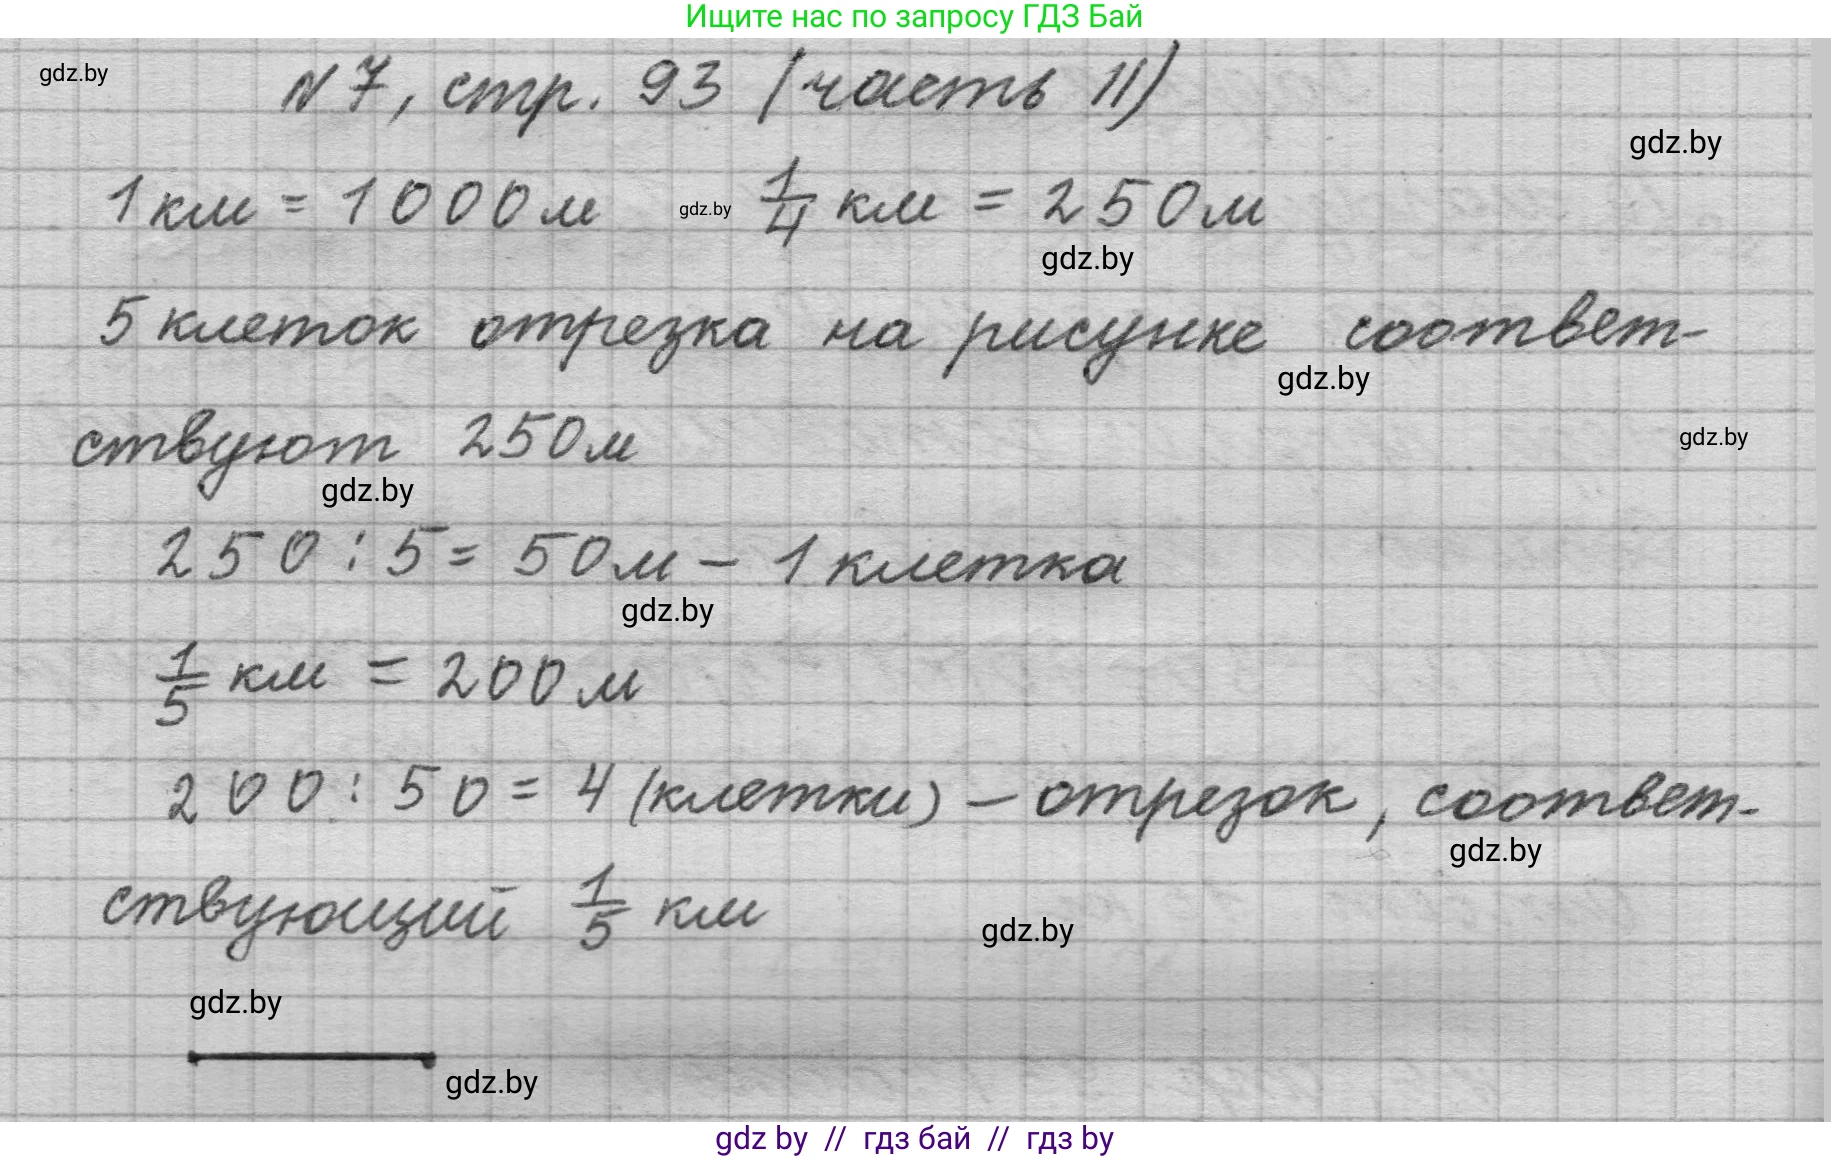 Ищите нас по запросу ГДЗ Бай
gdz.by
№7, стр. 93 (часть II)
gdz.by
1 км = 1000 м gdz.by 1/4 км = 250 м
gdz.by
5 клеток отрезка на рисунке соответ-
gdz.by
ствуют 250 м
gdz.by
gdz.by
250 : 5 = 50 м – 1 клетка
gdz.by
1/5 км = 200 м
200 : 50 = 4 (клетки) – отрезок, соответ-
gdz.by
ствующий 1/5 км
gdz.by
gdz.by
gdz.by
gdz by // гдз бай // гдз by